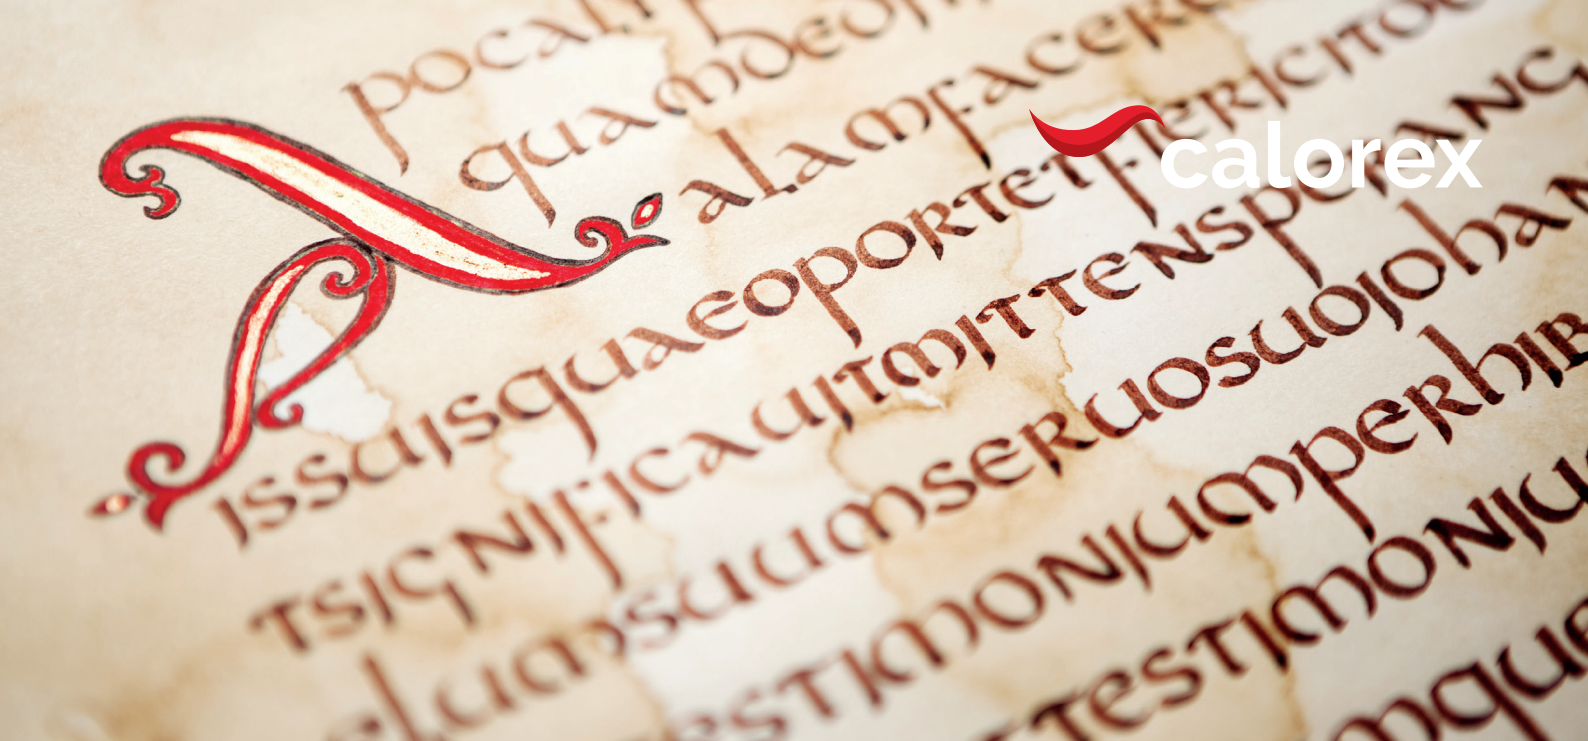 Apocal
quamded
alamfacere
issuisquaeoportetfiericito
tsignificauitmittensperang
elumsuumseruosuojohan
estimoniumperhib
testimoniu
mque
calorex